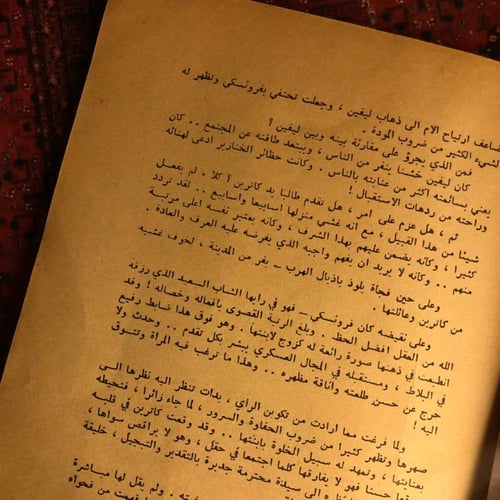 ضاعف ارتياح الام الى ذهاب ليفين ، وجعلت تحتفي بفرونسكي وتظهر له
الشيء الكثير من ضروب المودة .
فمن الذي يجرؤ على مقارنته بينه وبين ليفين ؟
كان ليفين خشنا ينفر من الناس ، ويبتعد طاقته عن المجتمع .. كان
يعني بسائمته أكثر من عنايته بالناس . وكانت حظائر الخنازير ادعى لهنائه
وراحته من ردهات الاستقبال !
ثم ، هل عزم على امر ، هل تقدم طالبا يد كاترين ؟ كلا . لم يفعل
شيئا من هذا القبيل ، مع انه غشى منزلها اسابيعا وأسابيع .. لقد تردد
كثيرا ، وكأنه يضمن عليهم بهذا الشرف ، وكأنه يعتبر نفسه اعلى مرتبة
منهم .. وكأنه لا يريد ان يفهم واجبه الذي يفرضه عليه العرف والعادة .
وعلى حين فجأة يلوذ باذيال الهرب – يفر من المدينة ، لخوف غشيه
من كاترين وعائلتها .
وعلى نقيضه كان فرونسكي – فهو في رايها الشاب السعيد الذي رزقه
الله من العقل افضل الحظ . وبلغ الرتبة القصوى بافعاله وخصاله ! وقد
انطبعت في ذهنها صورة رائعة له كزوج لابنتها . وهو فوق هذا ضابط رفيع
في البلاط ، ومستقبله في المجال العسكري يبشر بكل تقدم .. وحدث ولا
حرج عن حسن طلعته وأناقة مظهره .. وهذا ما ترغب فيه المرأة وتتوق
اليه !
ولما فرغت مما ارادت من تكوين الرأي ، بدات تنظر اليه نظرها الى
صهرها وتظهر كثيرا من ضروب الحفاوة والسرور ، لما جاء زائرا ، فتحيطه
بعنايتها ، وتمهد له سبيل الخلوة بابنتها .. وقد وقعت كاترين في قلبه
حسنا فهو لا يفارقها كلما اجتمعا في حفل ، وهو لا يراقص سواها ،
الى سيدة محترمة جديرة بالتقدير والتبجيل ، خليقة
. ولم يقل لها مباشرة
من فحواه